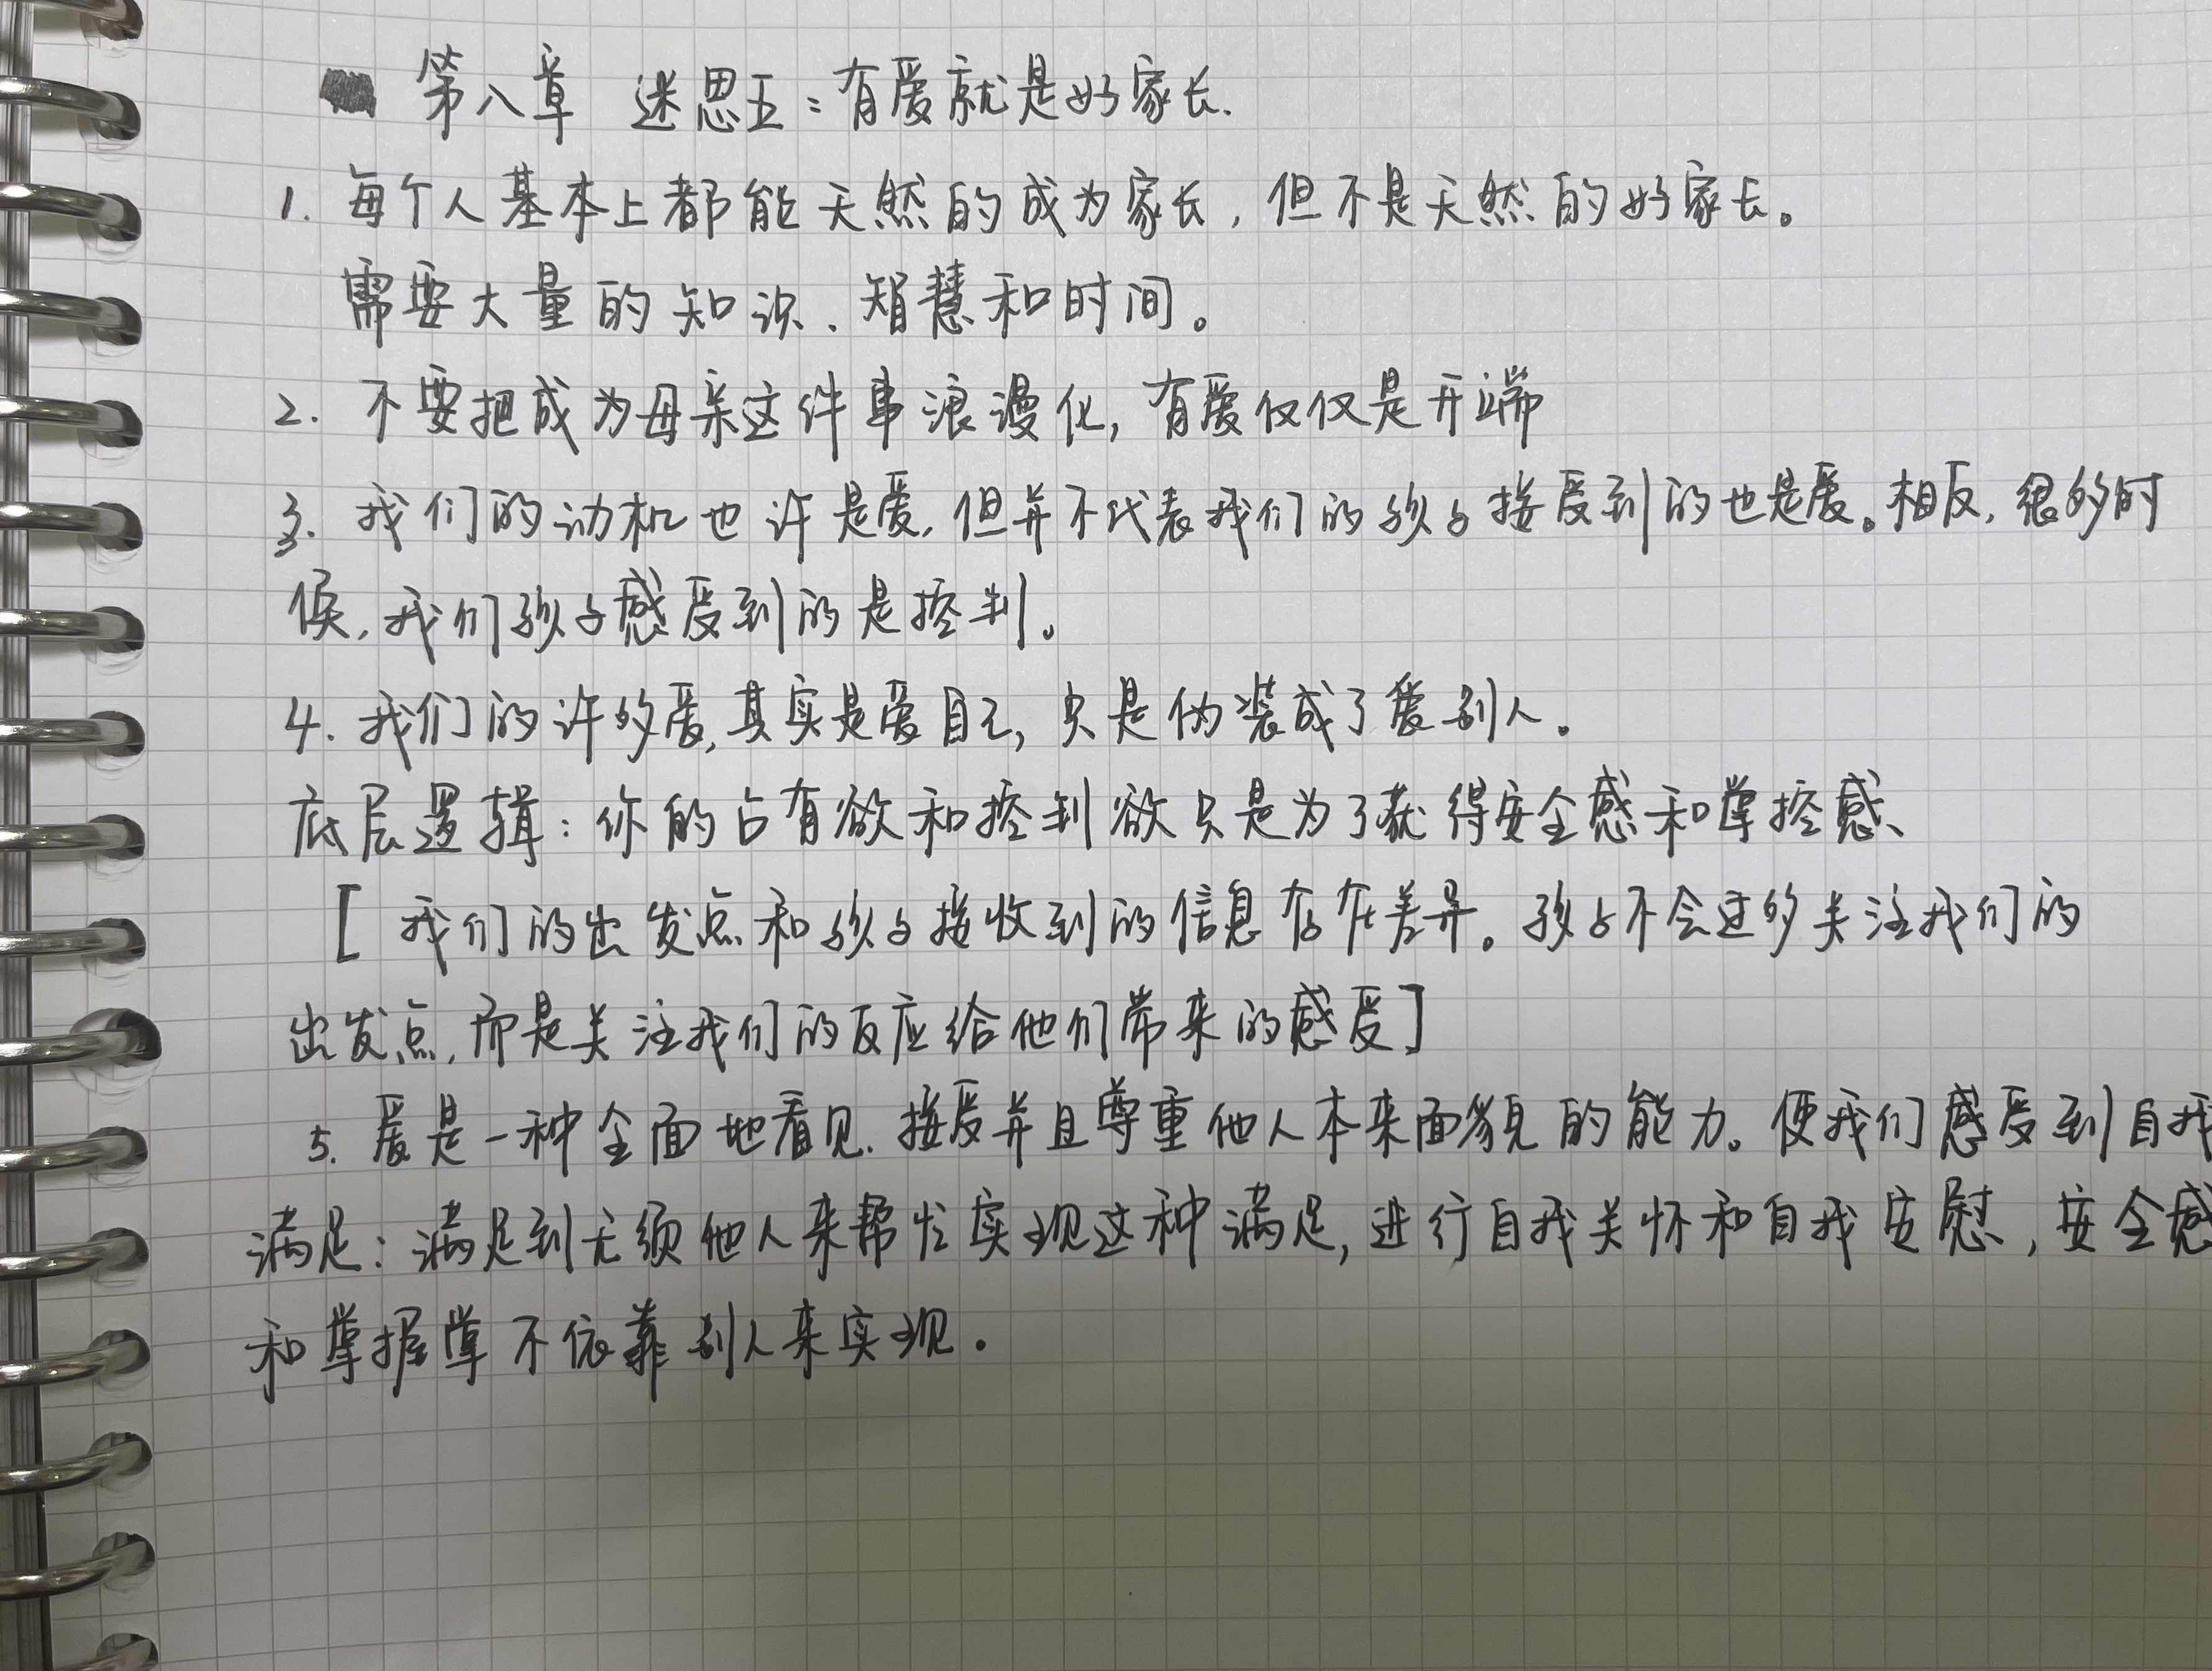 第八章 迷思五：有爱就是好家长.
1. 每个人基本上都能天然的成为家长，但不是天然的好家长。
需要大量的知识、智慧和时间。
2. 不要把成为母亲这件事浪漫化，有爱仅仅是开端
3. 我们的动机也许是爱，但并不代表我们的孩子接受到的也是爱。相反，很多时
候，我们孩子感受到的是控制。
4. 我们的许多爱，其实是爱自己，只是伪装成了爱别人。
底层逻辑：你的占有欲和控制欲只是为了获得安全感和掌控感、
[ 我们的出发点和孩子接收到的信息存在差异。孩子不会过多关注我们的
出发点，而是关注我们的反应给他们带来的感受]
5. 爱是一种全面地看见、接受并且尊重他人本来面貌的能力。使我们感受到自我
满足：满足到无须他人来帮忙实现这种满足，进行自我关怀和自我安慰，安全感
和掌握掌不依靠别人来实现。